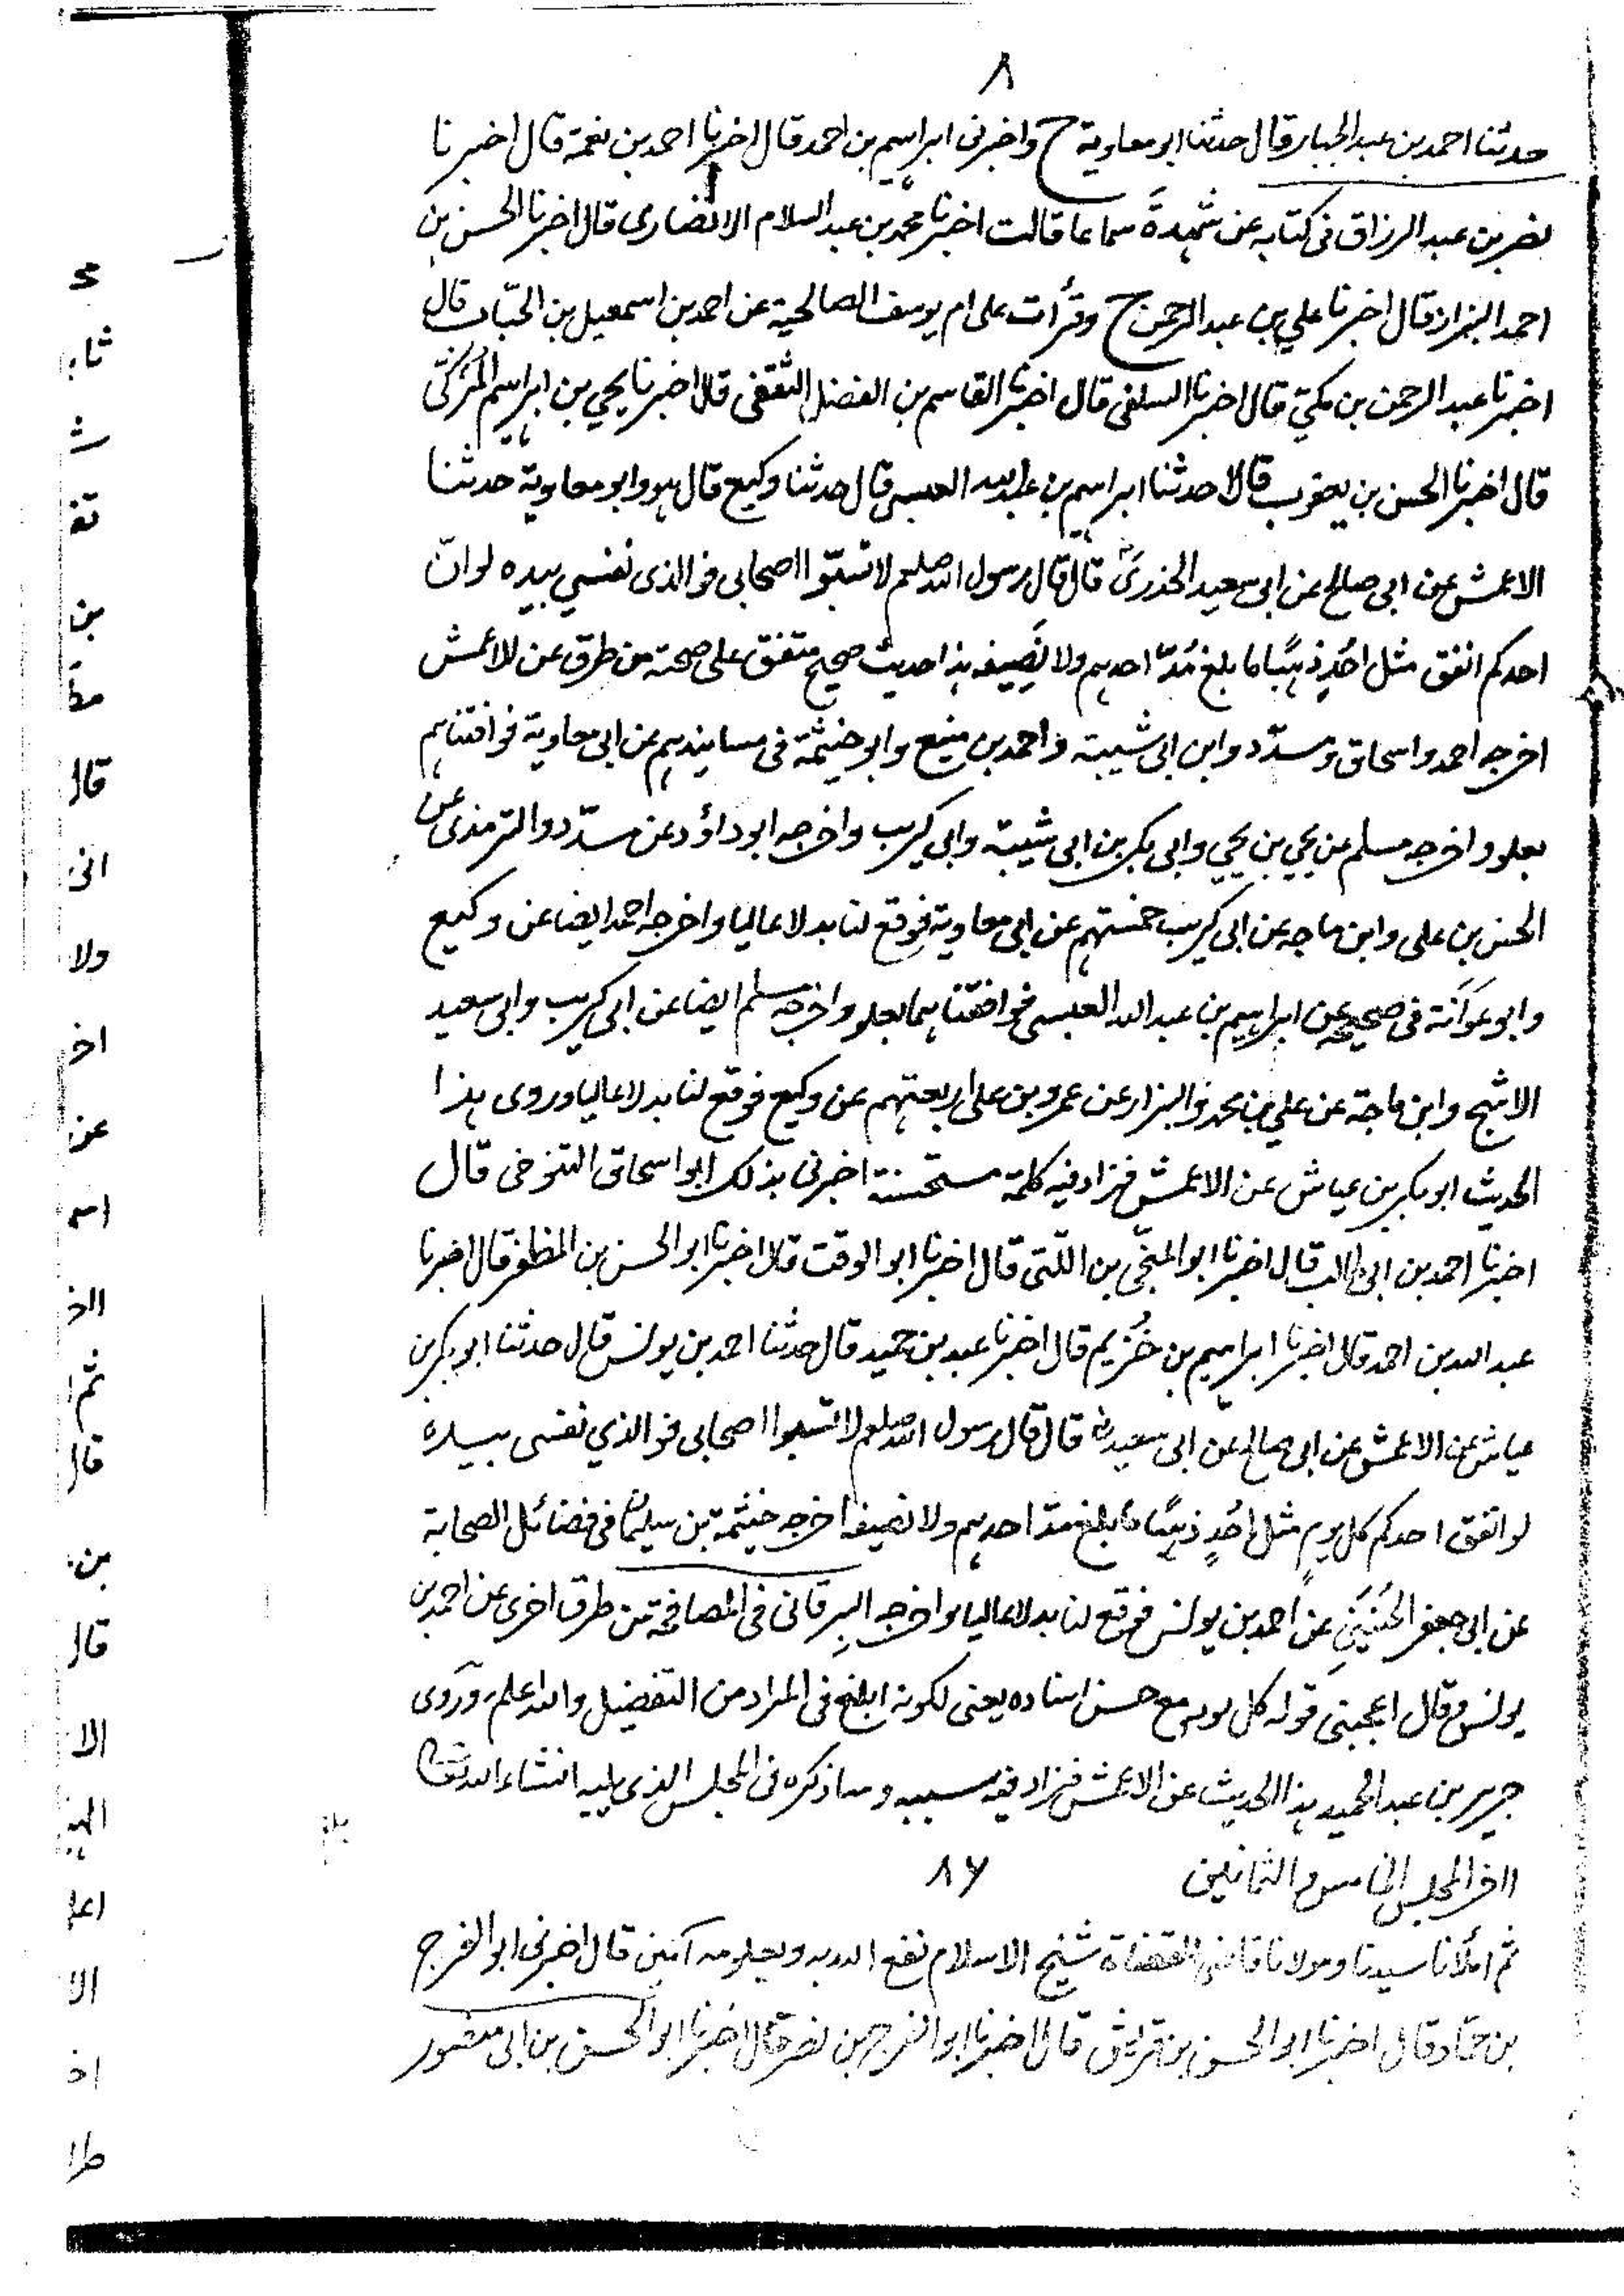 ٨
حدثنا احمد بن عبد الجبار قال حدثنا ابو معاوية ح واخبرنى ابراہیم بن احمد قال اخبرنا احمد بن نعمة قال اخبرنا
نصر بن عبد الرزاق فى كتابه عن شهدة سماعا قالت اخبرنا محمد بن عبد السلام الانصارى قال اخبرنا الحسن بن
احمد البزاز قال اخبرنا علي بن عبد الرحمن ح وقرأت على ام يوسف الصالحية عن احمد بن اسمعيل بن الحبّاب قال
اخبرنا عبد الرحمن بن مكيّ قال اخبرنا السلفى قال اخبرنا القاسم بن الفضل الثقفى قال اخبرنا يحيي بن ابراہیم المُزكّى
قال اخبرنا الحسن بن يعقوب قالا حدثنا ابراہیم بن عبد الله العبسى قال حدثنا وكيع قال ہو وابو معاوية حدثنا
الاعمش عن ابى صالح عن ابى سعيد الخدرىؓ قال قال رسول الله صلعم لا تسبّوا اصحابى فوالذى نفسي بيده لو انّ
احدكم انفق مثل احُدٍ ذہبًا ما بلغ مُدّ احدہم ولا نَصِيفه ہذا حديث صحيح متفق على صحته من طرق عن الاعمش
اخرجه احمد واسحاق ومسدّد وابن ابى شيبة واحمد بن منيع وابو خيثمة فى مسانيدہم عن ابى معاوية فوافقناہم
بعلو واخرجه مسلم عن يحيي بن يحيي وابى بكر بن ابى شيبة وابى كريب واخرجه ابو داؤد عن مسدّد والترمذى عن
الحسن بن على وابن ماجه عن ابى كريب خمستہم عن ابى معاوية فوقع لنا بدلا عاليا واخرجه احمد ايضا عن وكيع
وابو عَوَانَة فى صحيحه عن ابراہیم بن عبد الله العبسى فوافقناہما بعلو واخرجه مسلم ايضا عن ابى كريب وابى سعيد
الاشج وابن ماجة عن علي بن محمد والبزار عن عمرو بن على اربعتہم عن وكيع فوقع لنا بدلا عاليا وروى ہذا
الحديث ابو بكر بن عياش عن الاعمش فزاد فيه كلمة مستحسنة اخبرنى بذلك ابو اسحاق التنوخى قال
اخبرنا احمد بن ابى طالب قال اخبرنا ابو المنجّى بن اللتّى قال اخبرنا ابو الوقت قال اخبرنا ابو الحسن بن المظفر قال اخبرنا
عبد الله بن احمد قال اخبرنا ابراہیم بن خُزيم قال اخبرنا عبد بن حميد قال حدثنا احمد بن يونس قال حدثنا ابو بكر بن
عياش عن الاعمش عن ابى صالح عن ابى سعيدؓ قال قال رسول الله صلعم لا تسبوا اصحابى فوالذي نفسى بيده
لو انفق احدكم كل يوم مثل احُدٍ ذہبًا ما بلغ مدّ احدہم ولا نصيفه اخرجه خيثمة بن سليمان فى فضائل الصحابة
عن ابى جعفر الحُنَيني عن احمد بن يونس فوقع لنا بدلا عاليا واخرجه البرقانى فى المصافحة من طرق اخرى عن احمد بن
يونس وقال اعجبنى قوله كل يوم مع حسن اسناده يعنى لكونه ابلغ فى المراد من التفضيل والله اعلم، وروى
جرير بن عبد الحميد ہذا الحديث عن الاعمش فزاد فيه سببه وساذكره فى المجلس الذى يليه انشاء الله تعالى
اخر المجلس الخامس والثمانين ٨٦
ثم املأنا سيدنا ومولانا قاضى القضاة شيخ الاسلام نفع الله به وبعلومه آمين قال اخبرنى ابو الفرج
بن حمّاد قال اخبرنا ابو الحسن بن قريش قال اخبرنا ابو الفرج بن نصر قال اخبرنا ابو الحسن بن ابى منصور
قال
انى
ولا
اخ
عن
اسم
ثم
قال
بن
قال
الا